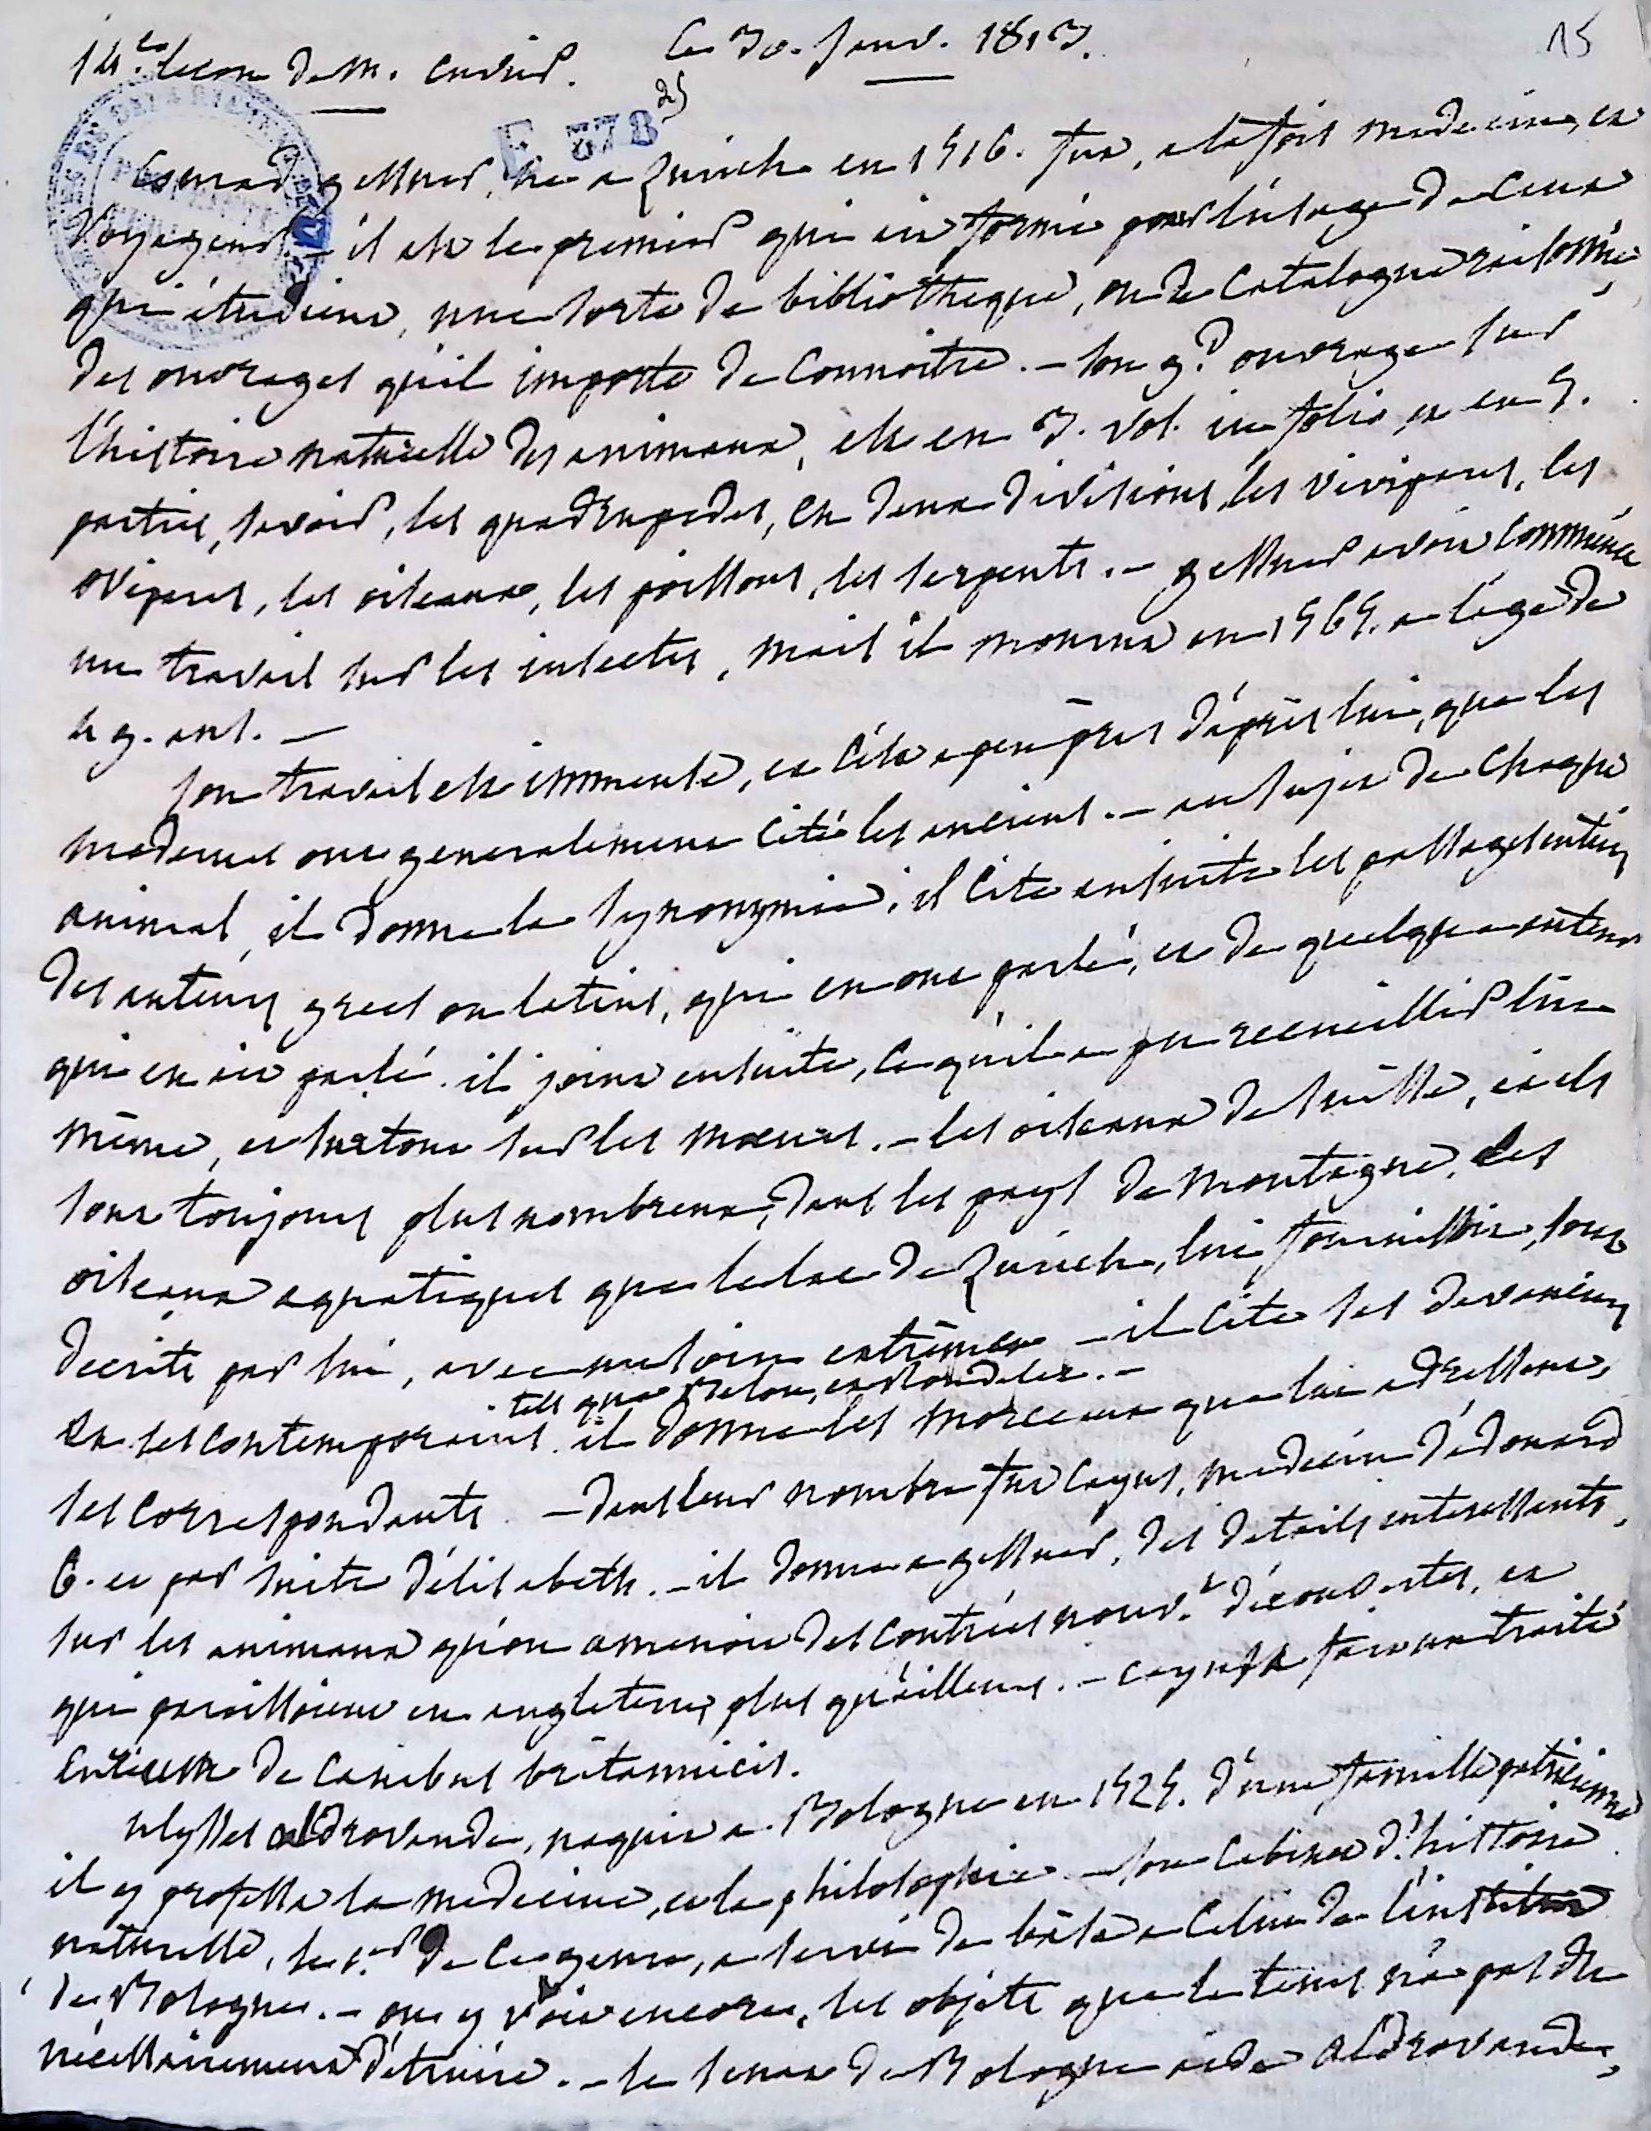 14.e lecon de M. Cuvier. Le 30. Janv. 1813. 15
E 378 des
Conrad gessner, né a Zurich en 1516. fut, a la fois medecin, et
Voyageur. - il est le premier qui ait formé pour l'usage de ceux
qui étudient, une sorte de bibliotheque, ou de Catalogue raisonné
des ouvrages qu'il importe de Connoître. - Son gd. ouvrage sur
l'histoire naturelle des animaux, est en 3. vol. in folio, et en 5.
parties, savoir, les quadrupedes, en deux divisions, les vivipares, les
ovipares, les oiseaux, les poissons, les serpents. - gessner avoit commencé
un travail sur les insectes, mais il mourut en 1565. a l'age de
49. ans. -
Son travail est immense, et c'est a peu près d'après lui, que les
modernes ont generalement cité les anciens. - au sujet de chaque
animal, il donne la synonymie; il cite ensuite les passages entiers
des auteurs grecs ou latins, qui en ont parlé, et de quelque auteur
qui en ait parlé. il joint ensuite, ce qu'il a pu recueillir lui
même, et surtout sur les mœurs. - les oiseaux de Suisse, car ils
sont toujours plus nombreux, dans les pays de montagne, les
oiseaux aquatiques que le lac de Zurich, lui fournissoit, sont
decrits par lui, avec un soin extrême - il cite ses devanciers
tels que Belon, et Rondelet. -
et ses contemporains. il donne les morceaux que lui adressent,
ses correspondants. - dans leur nombre fut Cayus, medecin d'Edouard
6. et par suite d'élisabeth. - il donna a gessner, des details interessants,
sur les animaux qu'on amenoit des contrées nouv.t découvertes, et
qui paroissoient en angleterre, plus qu'ailleurs. - Cayus a fait un traité
de canibus britannicis.
Ulysses aldrovande, naquit a Bologne en 1525. d'une famille patricienne
il y professa la medecine, et la philosophie. - Son Cabinet d'histoire
naturelle, le 1.er de ce genre, a servi de base a celui de l'institut
de Bologne. - on y voit encore, les objets que le tems n'a pas du
nécessairement détruire. - le senat de Bologne aida aldrovande,